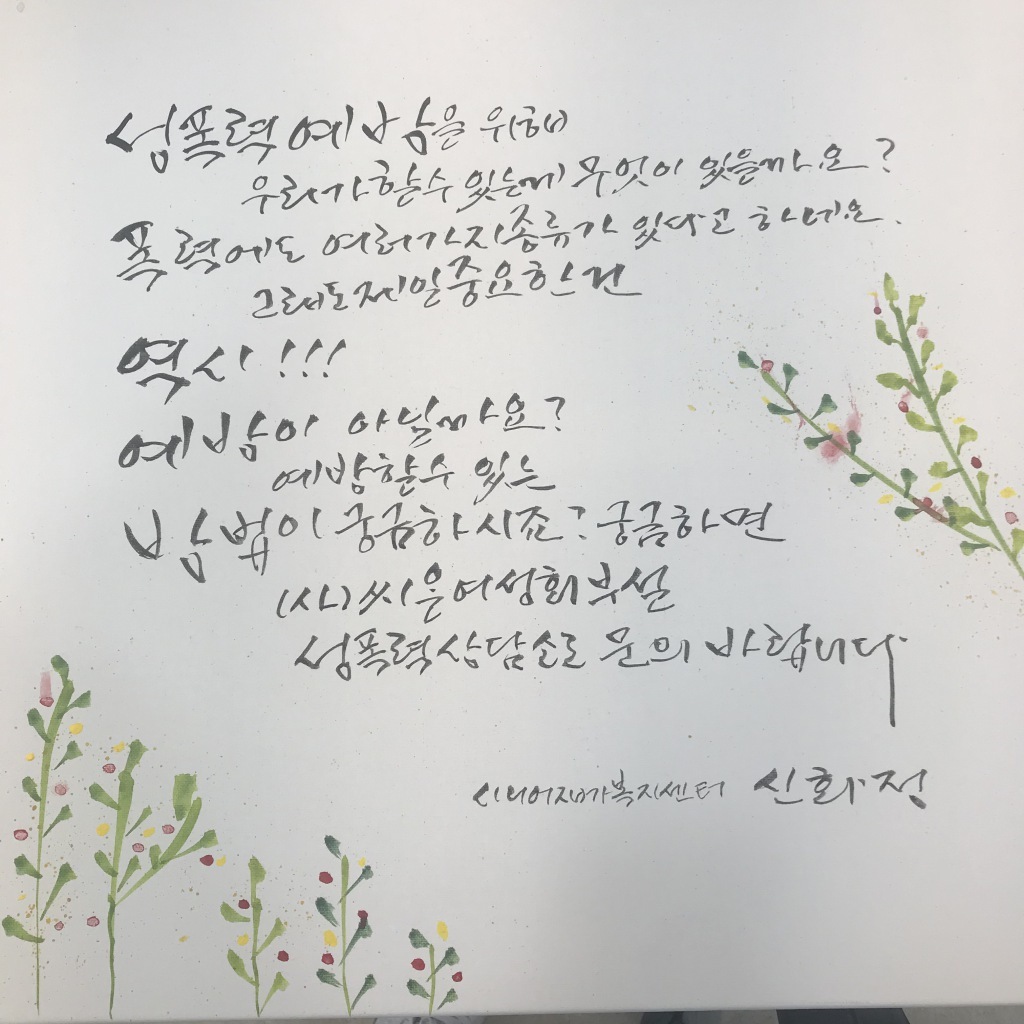 성폭력 예방을 위해
우리가 할수 있는게 무엇이 있을까요?
폭력에도 여러가지 종류가 있다고 하네요.
그래도 제일 중요한 건
역시!!!
예방이 아닐까요?
예방할수 있는
방법이 궁금하시죠? 궁금하면
(사)씨은여성회부설
성폭력상담소로 문의 바랍니다
시니어재가복지센터 신화정